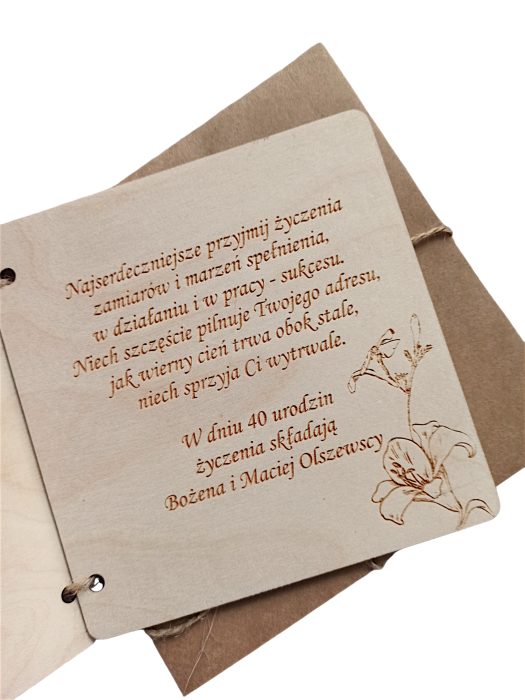 Najserdeczniejsze przyjmij życzenia
zamiarów i marzeń spełnienia,
w działaniu i w pracy - sukcesu.
Niech szczęście pilnuje Twojego adresu,
jak wierny cień trwa obok stale,
niech sprzyja Ci wytrwale.
W dniu 40 urodzin
życzenia składają
Bożena i Maciej Olszewscy